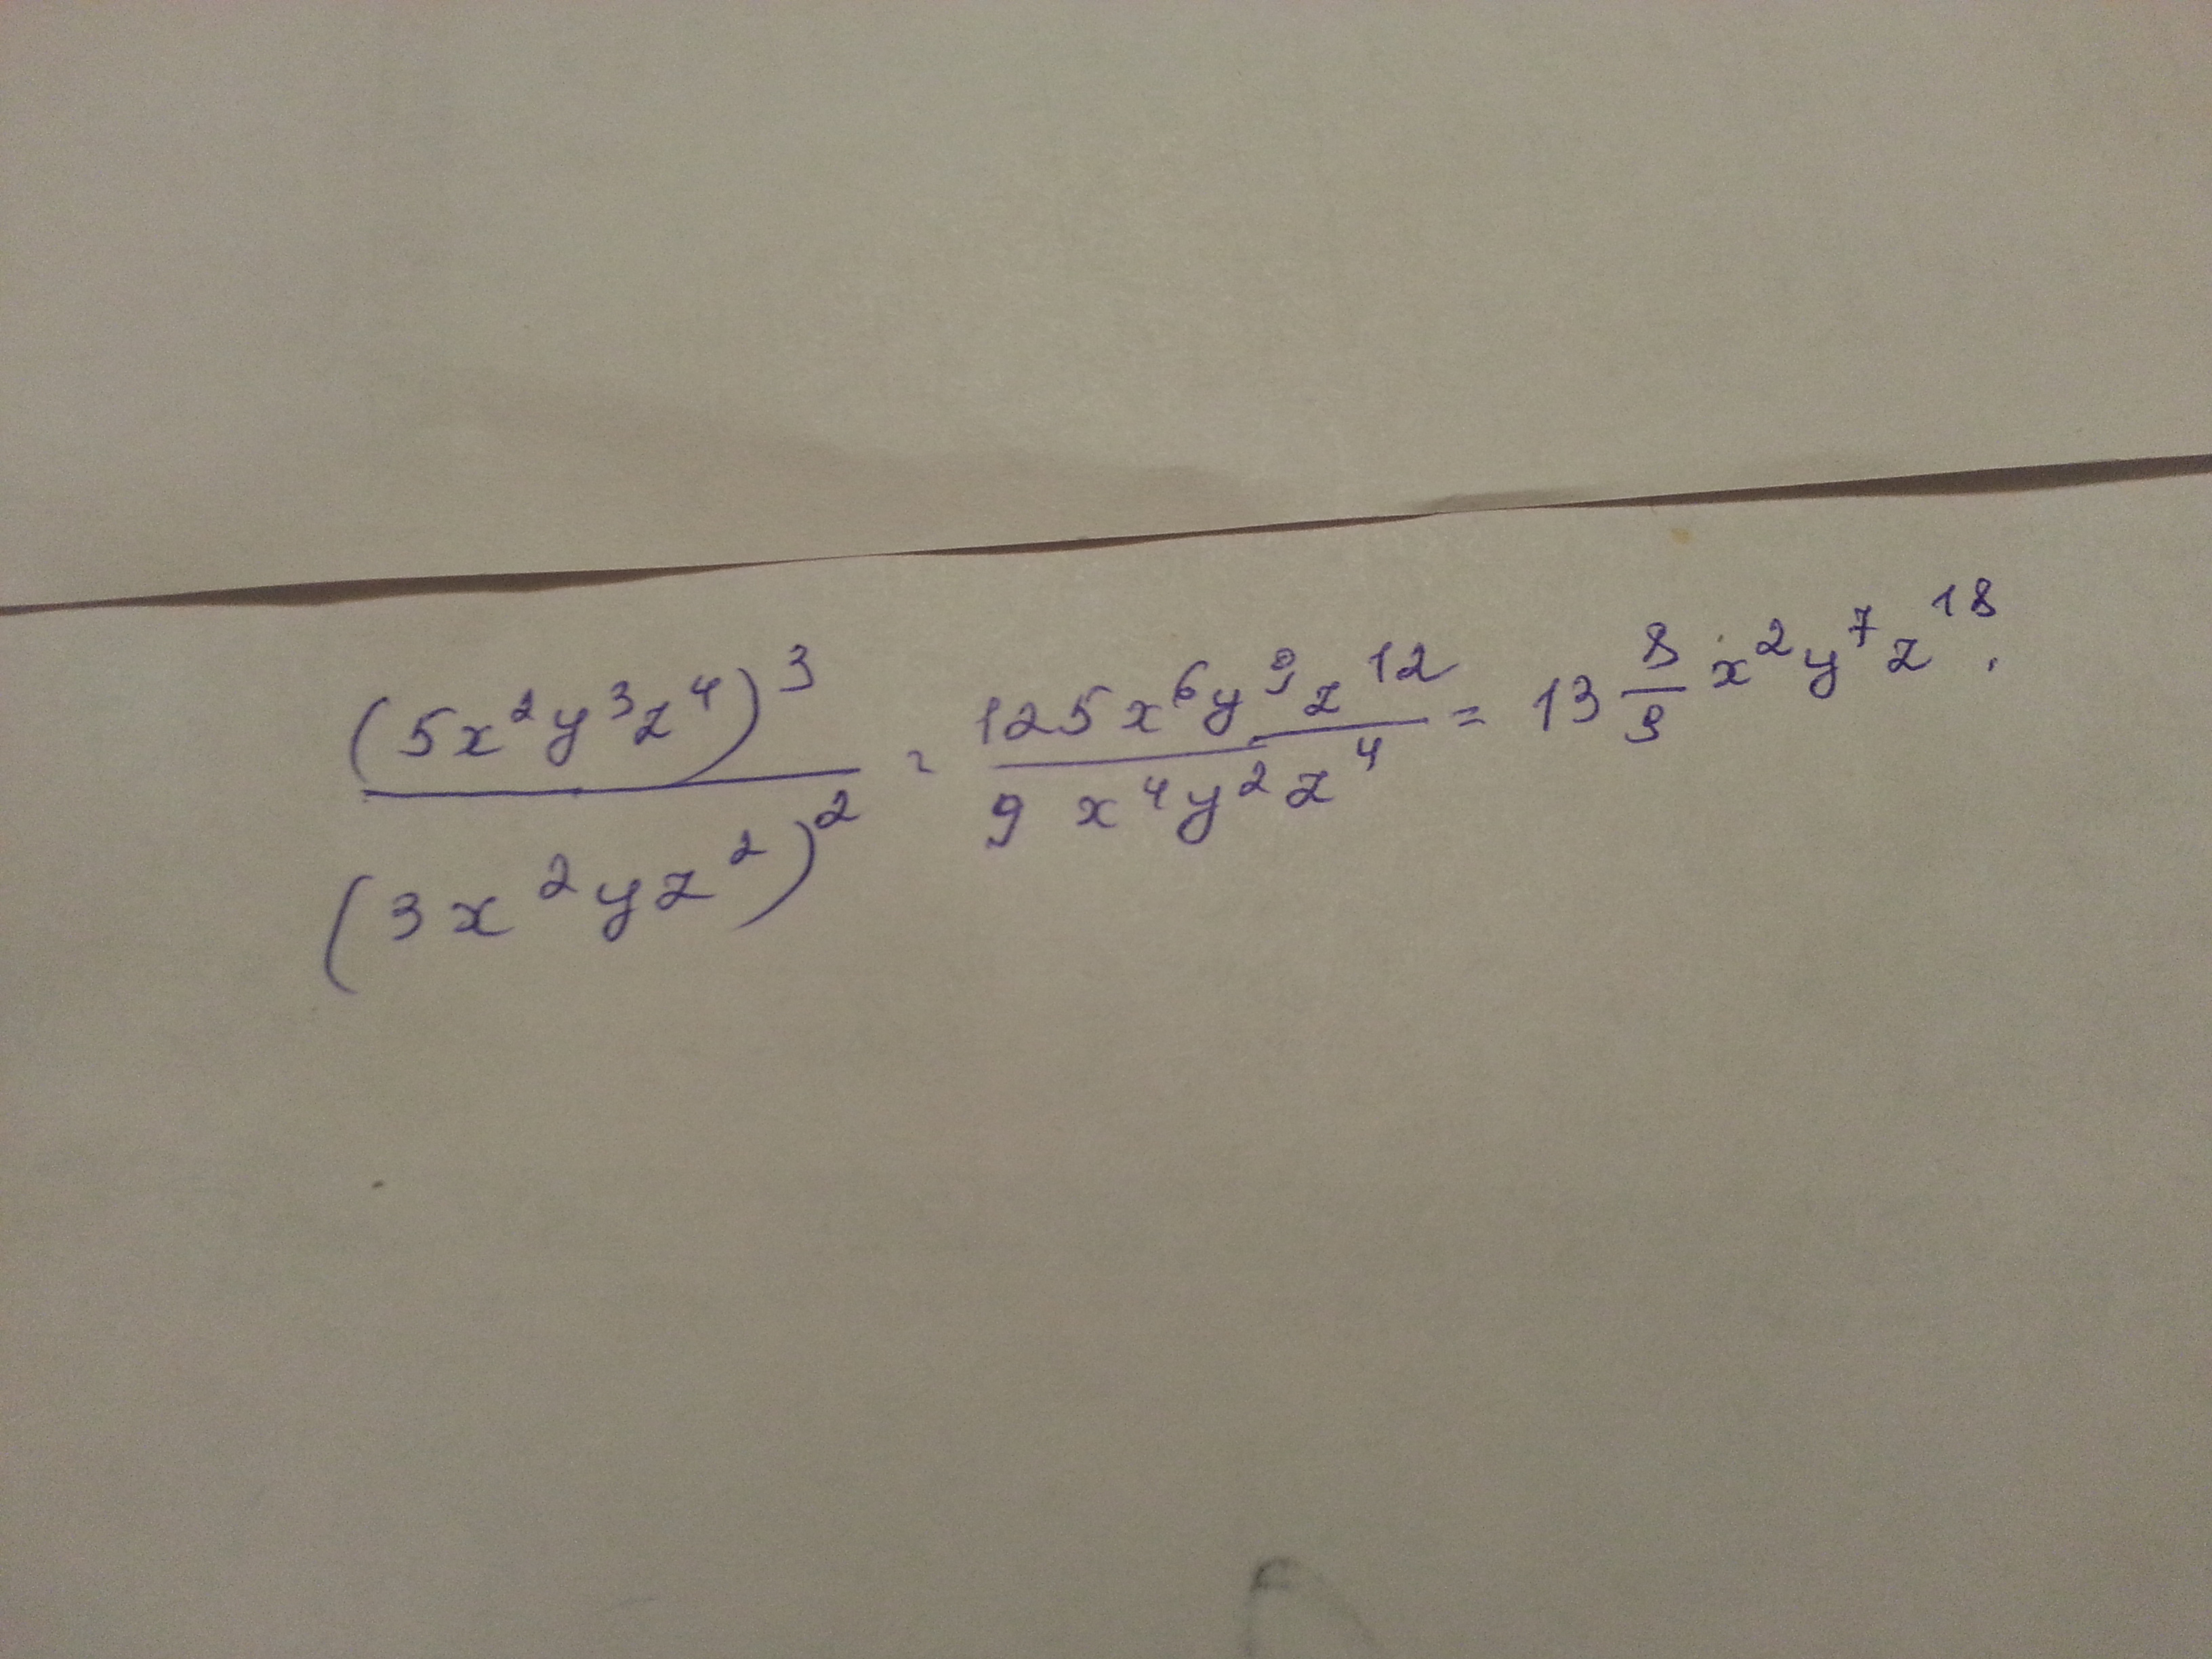 (5x²y³z⁴)³ / (3x²yz²)² = 125x⁶y⁹z¹² / 9x⁴y²z⁴ = 13 8/9 x²y⁷z¹⁸.